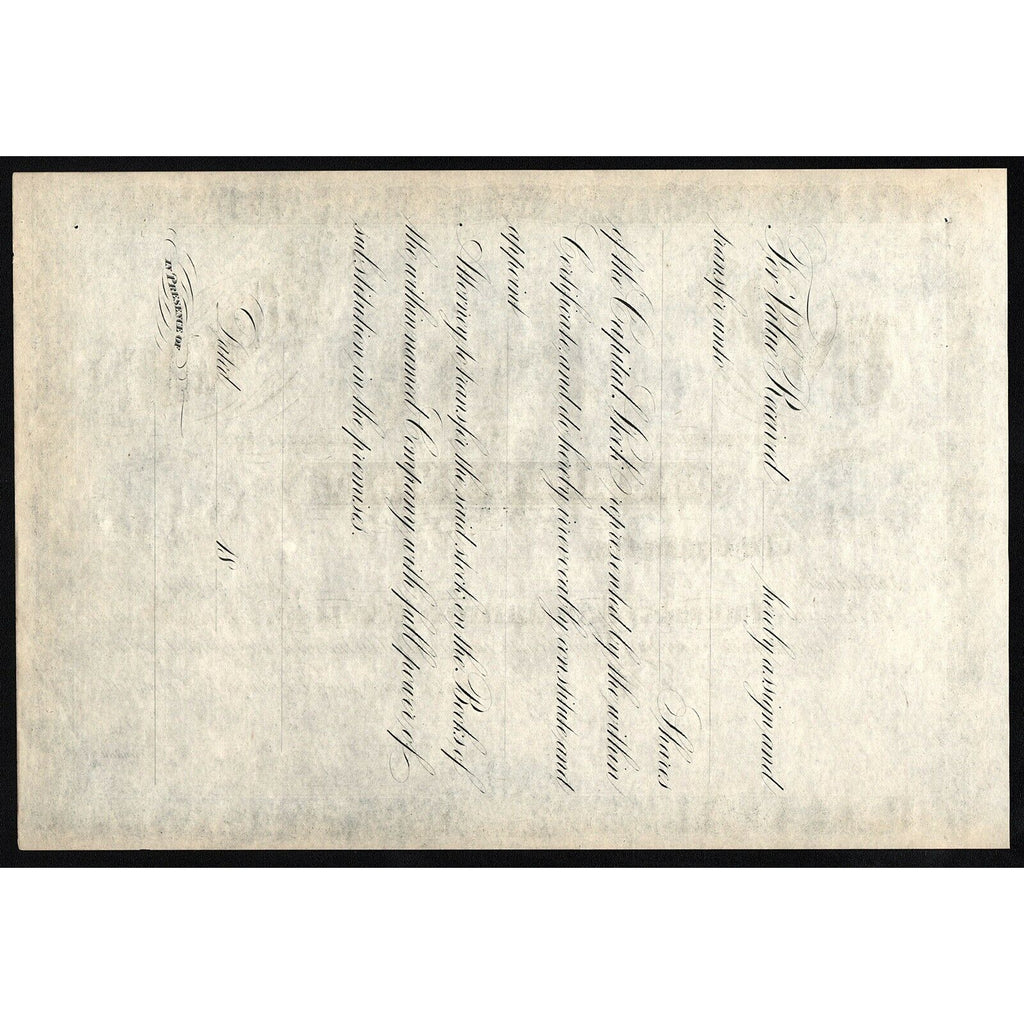 For Value Received hereby assign and
transfer unto
Shares
of the Capital Stock represented by the within
Certificate and do hereby irrevocably constitute and
appoint
Attorney to transfer the said stock on the Books of
the within named Company with full power of
substitution in the premises.
Dated 18
IN PRESENCE OF